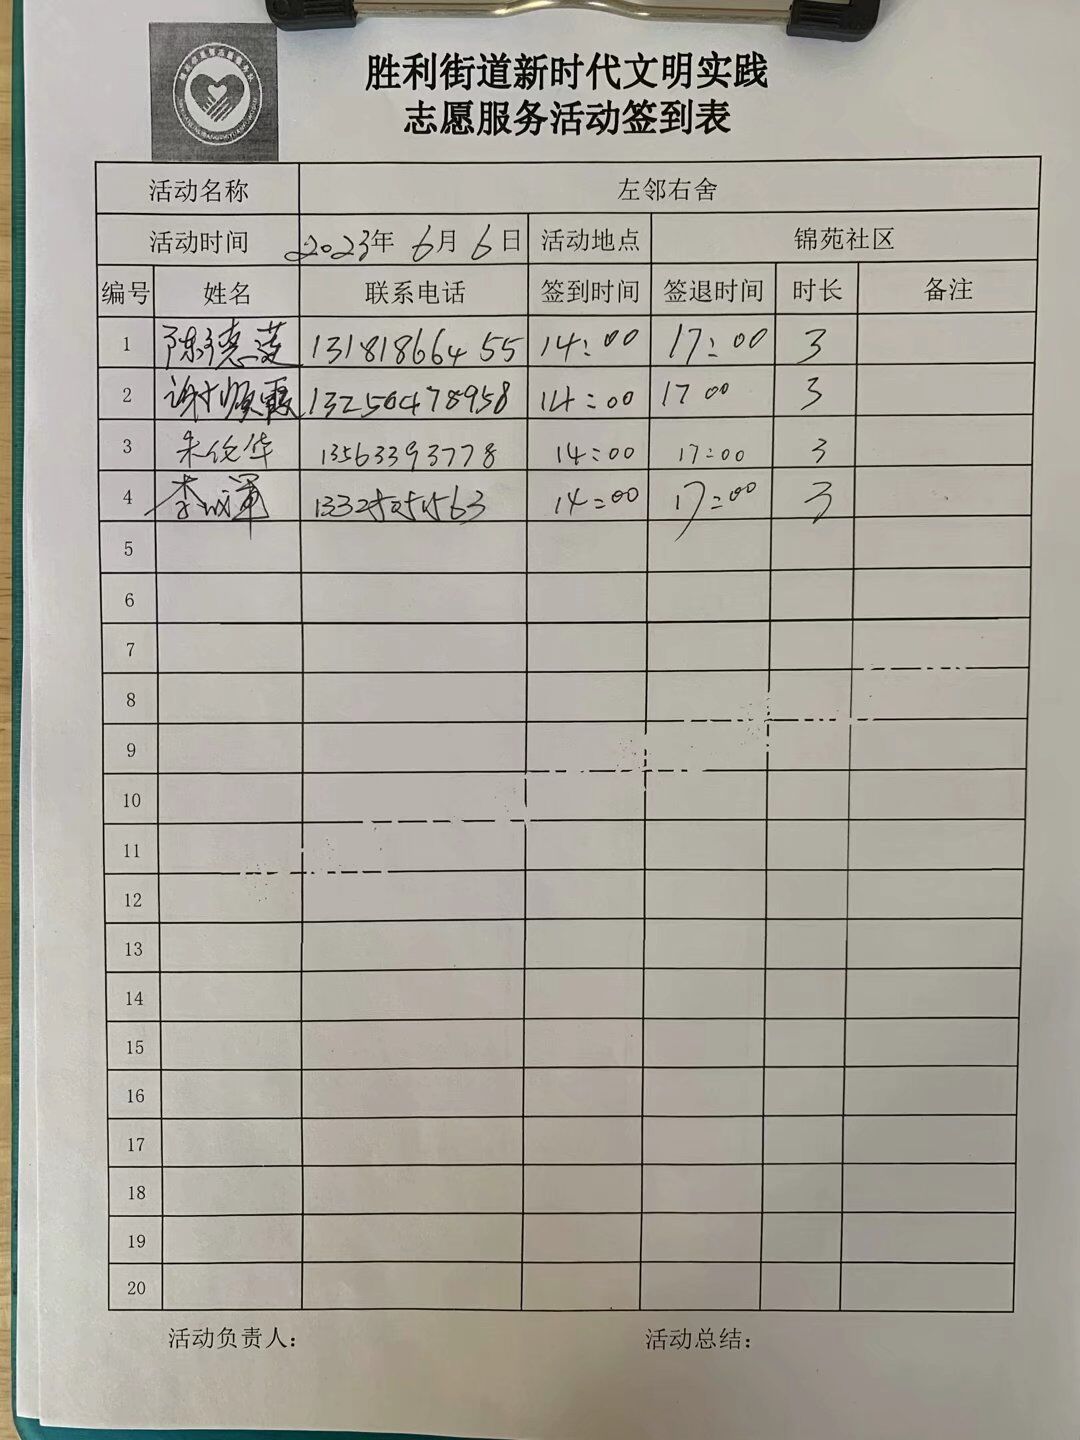 胜利街道新时代文明实践
志愿服务活动签到表
活动名称 左邻右舍
活动时间 2023年 6月 6日 活动地点 锦苑社区
编号 姓名 联系电话 签到时间 签退时间 时长 备注
1 陈德莲 13181866455 14:00 17:00 3
2 谢顺霞 13250478958 14:00 17 00 3
3 朱伦华 13563393778 14:00 17:00 3
4 李 14:00 17:00 3
5
6
7
8
9
10
11
12
13
14
15
16
17
18
19
20
活动负责人: 活动总结: